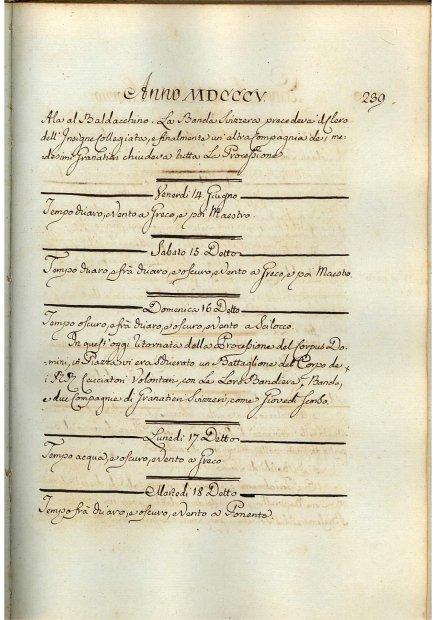 Anno MDCCCV.
239
Ala al Baldacchino. La Banda Svizzera precedeva il Clero
dell'Insigne Collegiata, e finalmente un'altra Compagnia de i me-
desimi Granatieri chiudeva tutta La Processione
Venerdì 14 Giugno
Tempo chiaro, e vento a Greco, e poi Maestro.
Sabato 15 Detto
Tempo chiaro, e frà chiaro, e oscuro, e vento a Greco, e poi Maestro.
Domenica 16 Detto
Tempo oscuro, e frà chiaro, e oscuro, e vento a Scilocco.
In quest'oggi ritornata della Processione del Corpus Do-
mini, in Piazza vi era schierato un Battaglione del Corpo de
i Cacciatori Volontari, con La Loro Bandiera, Banda,
e due Compagnie di Granatieri Svizzeri, come Giovedì scorso.
Lunedì 17 Detto
Tempo acqua, e oscuro, e vento a Greco
Martedì 18 Detto
Tempo frà chiaro, e oscuro, e vento a Ponente.